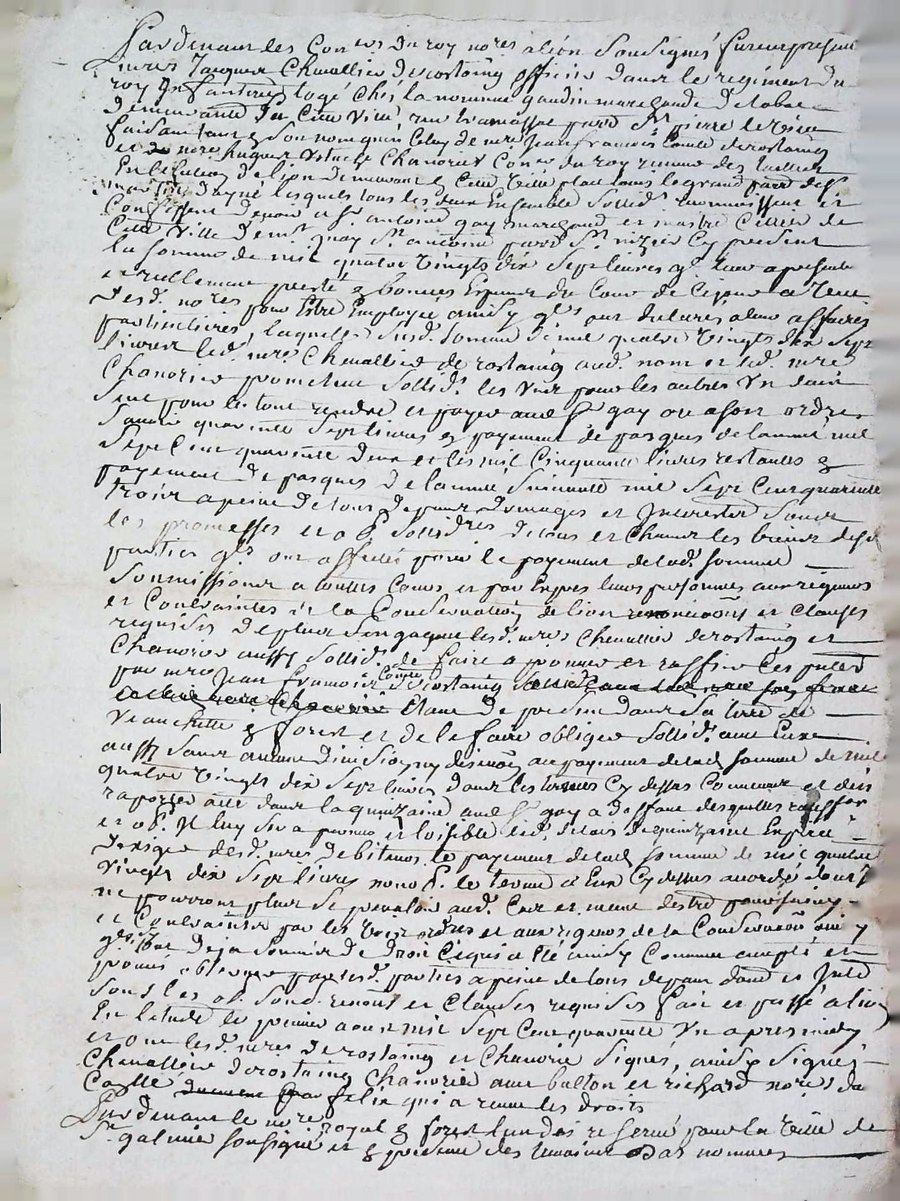 Pardevant les Con.ers du roy no.res a lion soussignés furent presents
Jacques Chevallier de rostaing officier dans le regiment du
roy Infanterie logé chés la nommée gaudin marchande de tabac
demeurante du Cette Ville rue paroisse St pierre le vieux
faisant tant en son nom qu'en Celuy de mre Jean francois Comte de rostaing
et mre hugues Chanorier Con.er du roy receveur des tailles
En l'election de lion demeurant En Cette Ville place louis le grand parr.
d'ainé lesquels tous les deux Ensemble sollid.t reconnoissent et
Confessent devoir a Sr antoine gay marchand et maitre de
Cette Ville dem.t quay St antoine parr. St nizier Cy present
la somme de mil quatre vingts dix sept livres p.r leur a present
et reellement presté en bonnes Especes du Cours de Ce jour a veue
desd. no.res pour Estre Employée ainsy q.ls ont declaré a leurs affaires
particulieres, laquelle susd. somme de mil quatre vingts dix sept
livres led. mre Chevallier de rostaing aud. nom et led. mre
Chanorier promettent sollid.t les Uns pour les autres Un deux
seul pour le tout rendre et payer aud. Sr gay ou a son ordre
savoir quarante sept livres en payement de pasques de l'année mil
sept Cent quarante deux et les mil Cinquante livres restantes en
payement de pasques de l'année suivante mil sept Cent quarante
trois a peine de tous depens dommages et Interests sous
les promesses et ob. sollid.res de tous et Chacuns les biens desd.
parties q.ls ont affectés pour le payement de lad. somme
soumissions a toutes Cours et par Exprés leurs personnes aux rigueurs
et Contraintes de la Conservation de lion renonciations et Clauses
requises de plus s'engagent lesd. mres Chevallier de rostaing et
Chanorier aussy sollid.t de faire aprouver et ratiffier Ces presentes
par mre Jean francois Comte de rostaing
Etant de present dans sa terre de
Veauchette en forest et de le faire obliger sollid.t avec Eux
aussy sans aucune division ny discution au payement de lad. somme de mil
quatre vingts dix sept livres dans les termes Cy dessus Convenus et d'en
raporter acte dans la quinzaine aud. Sr gay a deffaut desquelles ratiffon
et ob. Il luy sera permis et loisible led. delais de quinzaine Expiré
d'exiger desd. mres debiteurs le payement de lad. somme de mil quatre
vingts dix sept livres nonob. le terme a Eux Cy dessus accordé dont Ils
ne pourront plus se prevaloir aud. Cas et meme d'estre poursuivy
et Contraints par les voyes ord.res et aux rigueurs de la Conservation ainsy
q.ls de ja soumis de droit Ce qui a été ainsy Comme accepté et
promis observer par lesd. parties a peine de tous depens dom. et Int.
sous les ob. soud. renon. et Clauses requises fait et passé a lion
En l'etude le premier aoust mil sept Cent quarante Un apres midy
et ont lesd. mres de rostaing et Chanorier signés, ainsy signés
Chevallier de rostaing Chanorier avec bulton et richard no.res du
par felix qui a receu les droits
Pardevant le no.re royal en forest reservé pour la Ville de
St galmier soussigné et en presence des temoins bas nommes